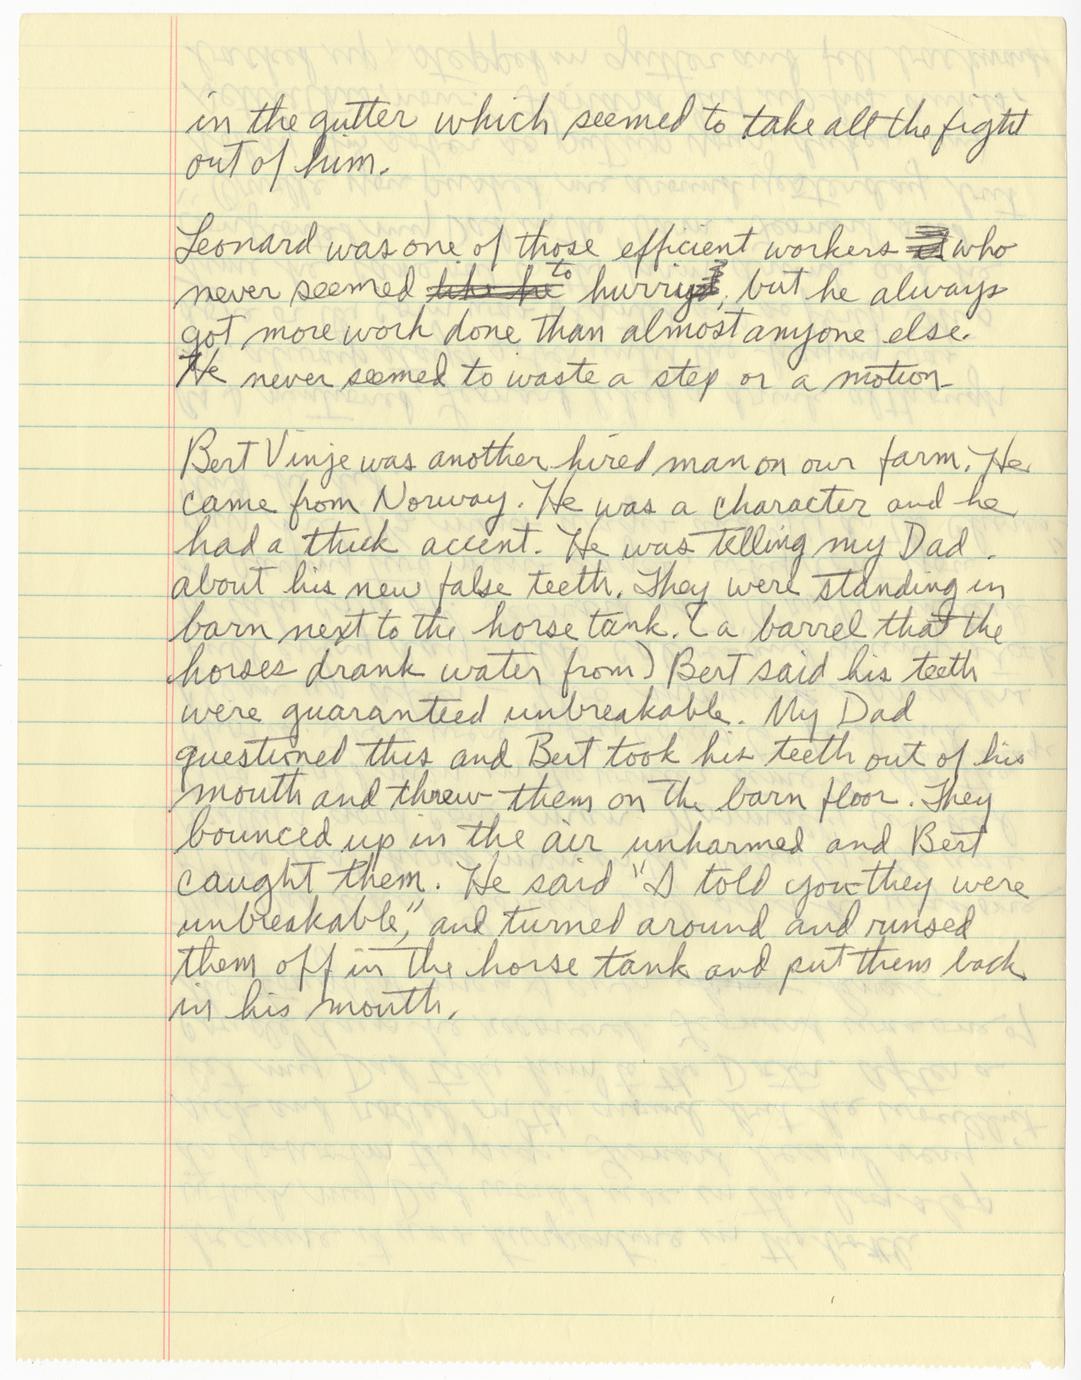 in the gutter which seemed to take all the fight
out of him.
Leonard was one of those efficient workers who
never seemed to hurry, but he always
got more work done than almost anyone else.
He never seemed to waste a step or a motion.
Bert Vinje was another hired man on our farm. He
came from Norway. He was a character and he
had a thick accent. He was telling my Dad
about his new false teeth. They were standing in
barn next to the horse tank. (a barrel that the
horses drank water from) Bert said his teeth
were guaranteed unbreakable. My Dad
questioned this and Bert took his teeth out of his
mouth and threw them on the barn floor. They
bounced up in the air unharmed and Bert
caught them. He said "I told you they were
unbreakable", and turned around and runsed
them off in the horse tank and put them back
in his mouth.